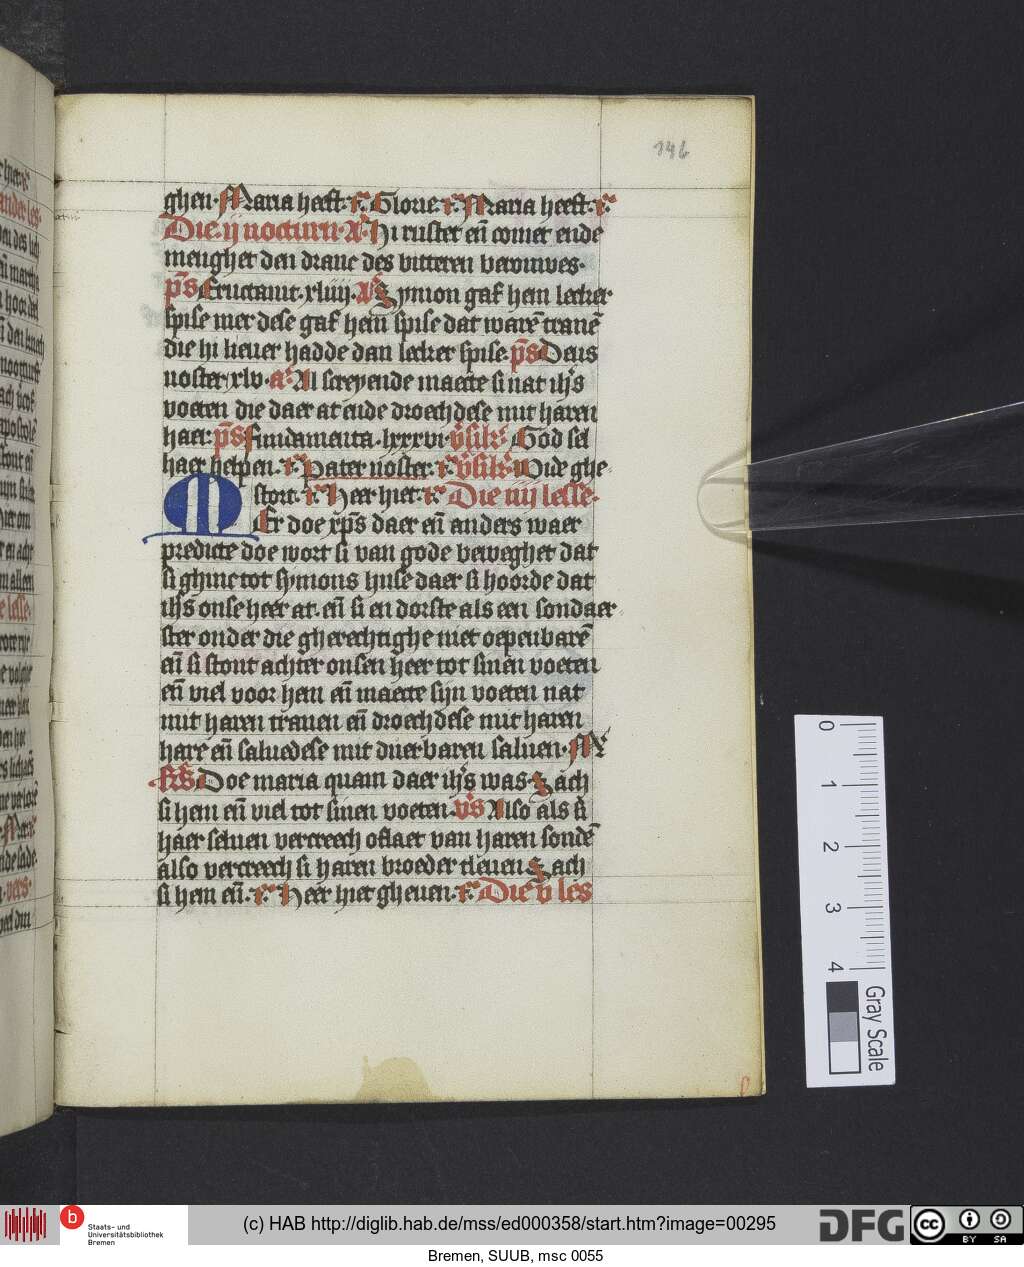 146
ghen. Maria heeft. r̃. Glorie. r̃. Maria heeft. r̃.
Die .ij nocturn. A. Hi rustet eñ comet ende
menghet den dranc des bitteren berouwes.
p̃s Eructauit. xliiij. A. Symon gaf hem lecker
spise mer dese gaf hem spise dat warē tranē
die hi lieuer hadde dan lecker spise. p̃s Deus
noster. xlv. a. Al screyende maecte si nat ih̄s
voeten die daer at ende droechdese mit haren
haer. p̃s Fundamenta. lxxxvi. v̄silr. God sel
haer helpen. r̃. Pater noster. r̃. v̄silr. Wide ghe
stort. r̃. Heer hier. r̃. Die iiij lesse.
M
Er doe xp̄s daer eñ anders waer
predicte doe wort si van gode beweghet dat
si ghinc tot symons huse daer si hoorde dat
ih̄s onse heer at. eñ si en dorste als een sondaer
ster onder die gherechtighe niet oepenbarē
eñ si stont achter onsen heer tot sinen voeten
eñ viel voor hem eñ maecte sijn voeten nat
mit haren tranen eñ droechdese mit haren
hare eñ saluedese mit duerbaren saluen.
Doe maria quam daer ih̄s was. Sach
si hem eñ viel tot sinen voeten. v̄s Also als si
haer seluen vercreech oflaet van haren sondē
also vercreech si haren broeder tleuen. Sach
si hem eñ. r̃. Heer hier gheuen. r̃. Die v les
0 1 2 3 4
Gray Scale
b Staats- und
Universitätsbibliothek
Bremen
(c) HAB http://diglib.hab.de/mss/ed000358/start.htm?image=00295
DFG
cc BY SA
Bremen, SUUB, msc 0055